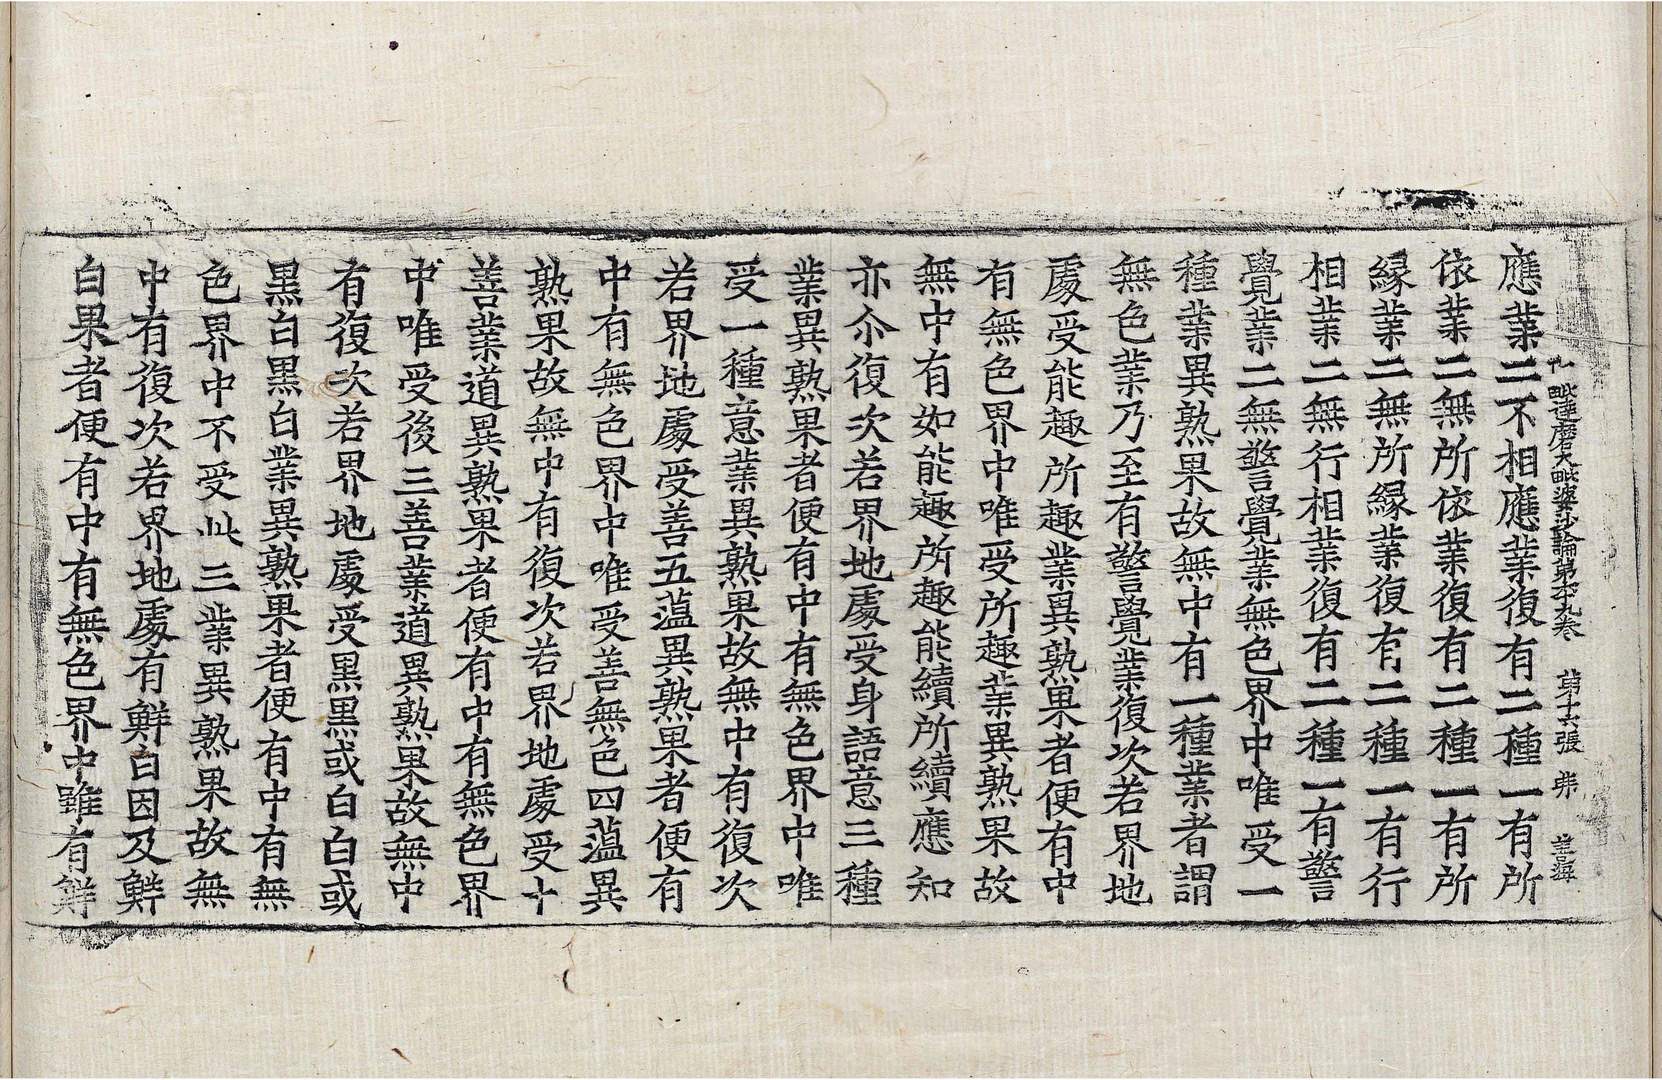 阿毗達磨大毗婆沙論第六十九卷 第十六張
應業二不相應業復有二種一有所
依業二無所依業復有二種一有所
縁業二無所縁業復有二種一有行
相業二無行相業復有二種一有警
覺業二無警覺業無色界中唯受一
種業異熟果故無中有一種業者謂
無色業乃至有警覺業復次若界地
處受能趣所趣業異熟果者便有中
有無色界中唯受所趣業異熟果故
無中有如能趣所趣能續所續應知
亦尒復次若界地處受身語意三種
業異熟果者便有中有無色界中唯
受一種意業異熟果故無中有復次
若界地處受善五蕰異熟果者便有
中有無色界中唯受善無色四蕰異
熟果故無中有復次若界地處受十
善業道異熟果者便有中有無色界
中唯受後三善業道異熟果故無中
有復次若界地處受黑黑或白白或
黑白黑白業異熟果者便有中有無
色界中不受此三業異熟果故無
中有復次若界地處有鮮白因及鮮
白果者便有中有無色界中雖有鮮